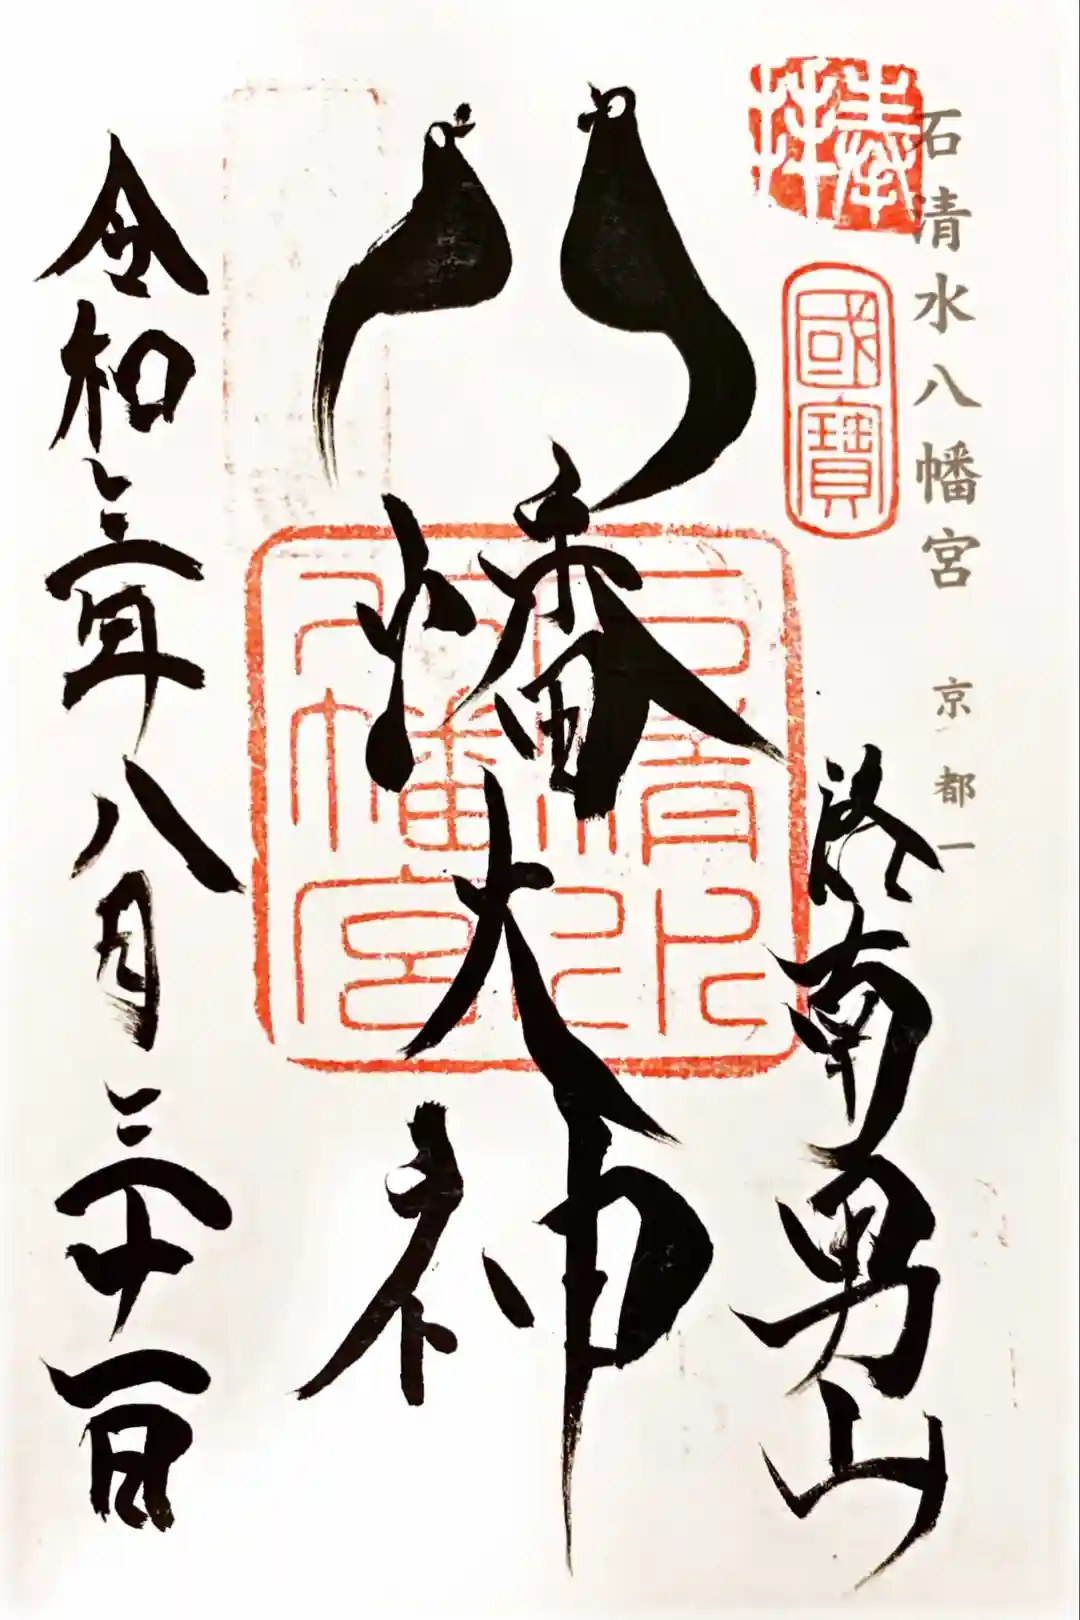 石清水八幡宮 京都一
奉拝
國寶
洛南男山
八幡大神
石清水八幡宮印
令和三年八月三十一日